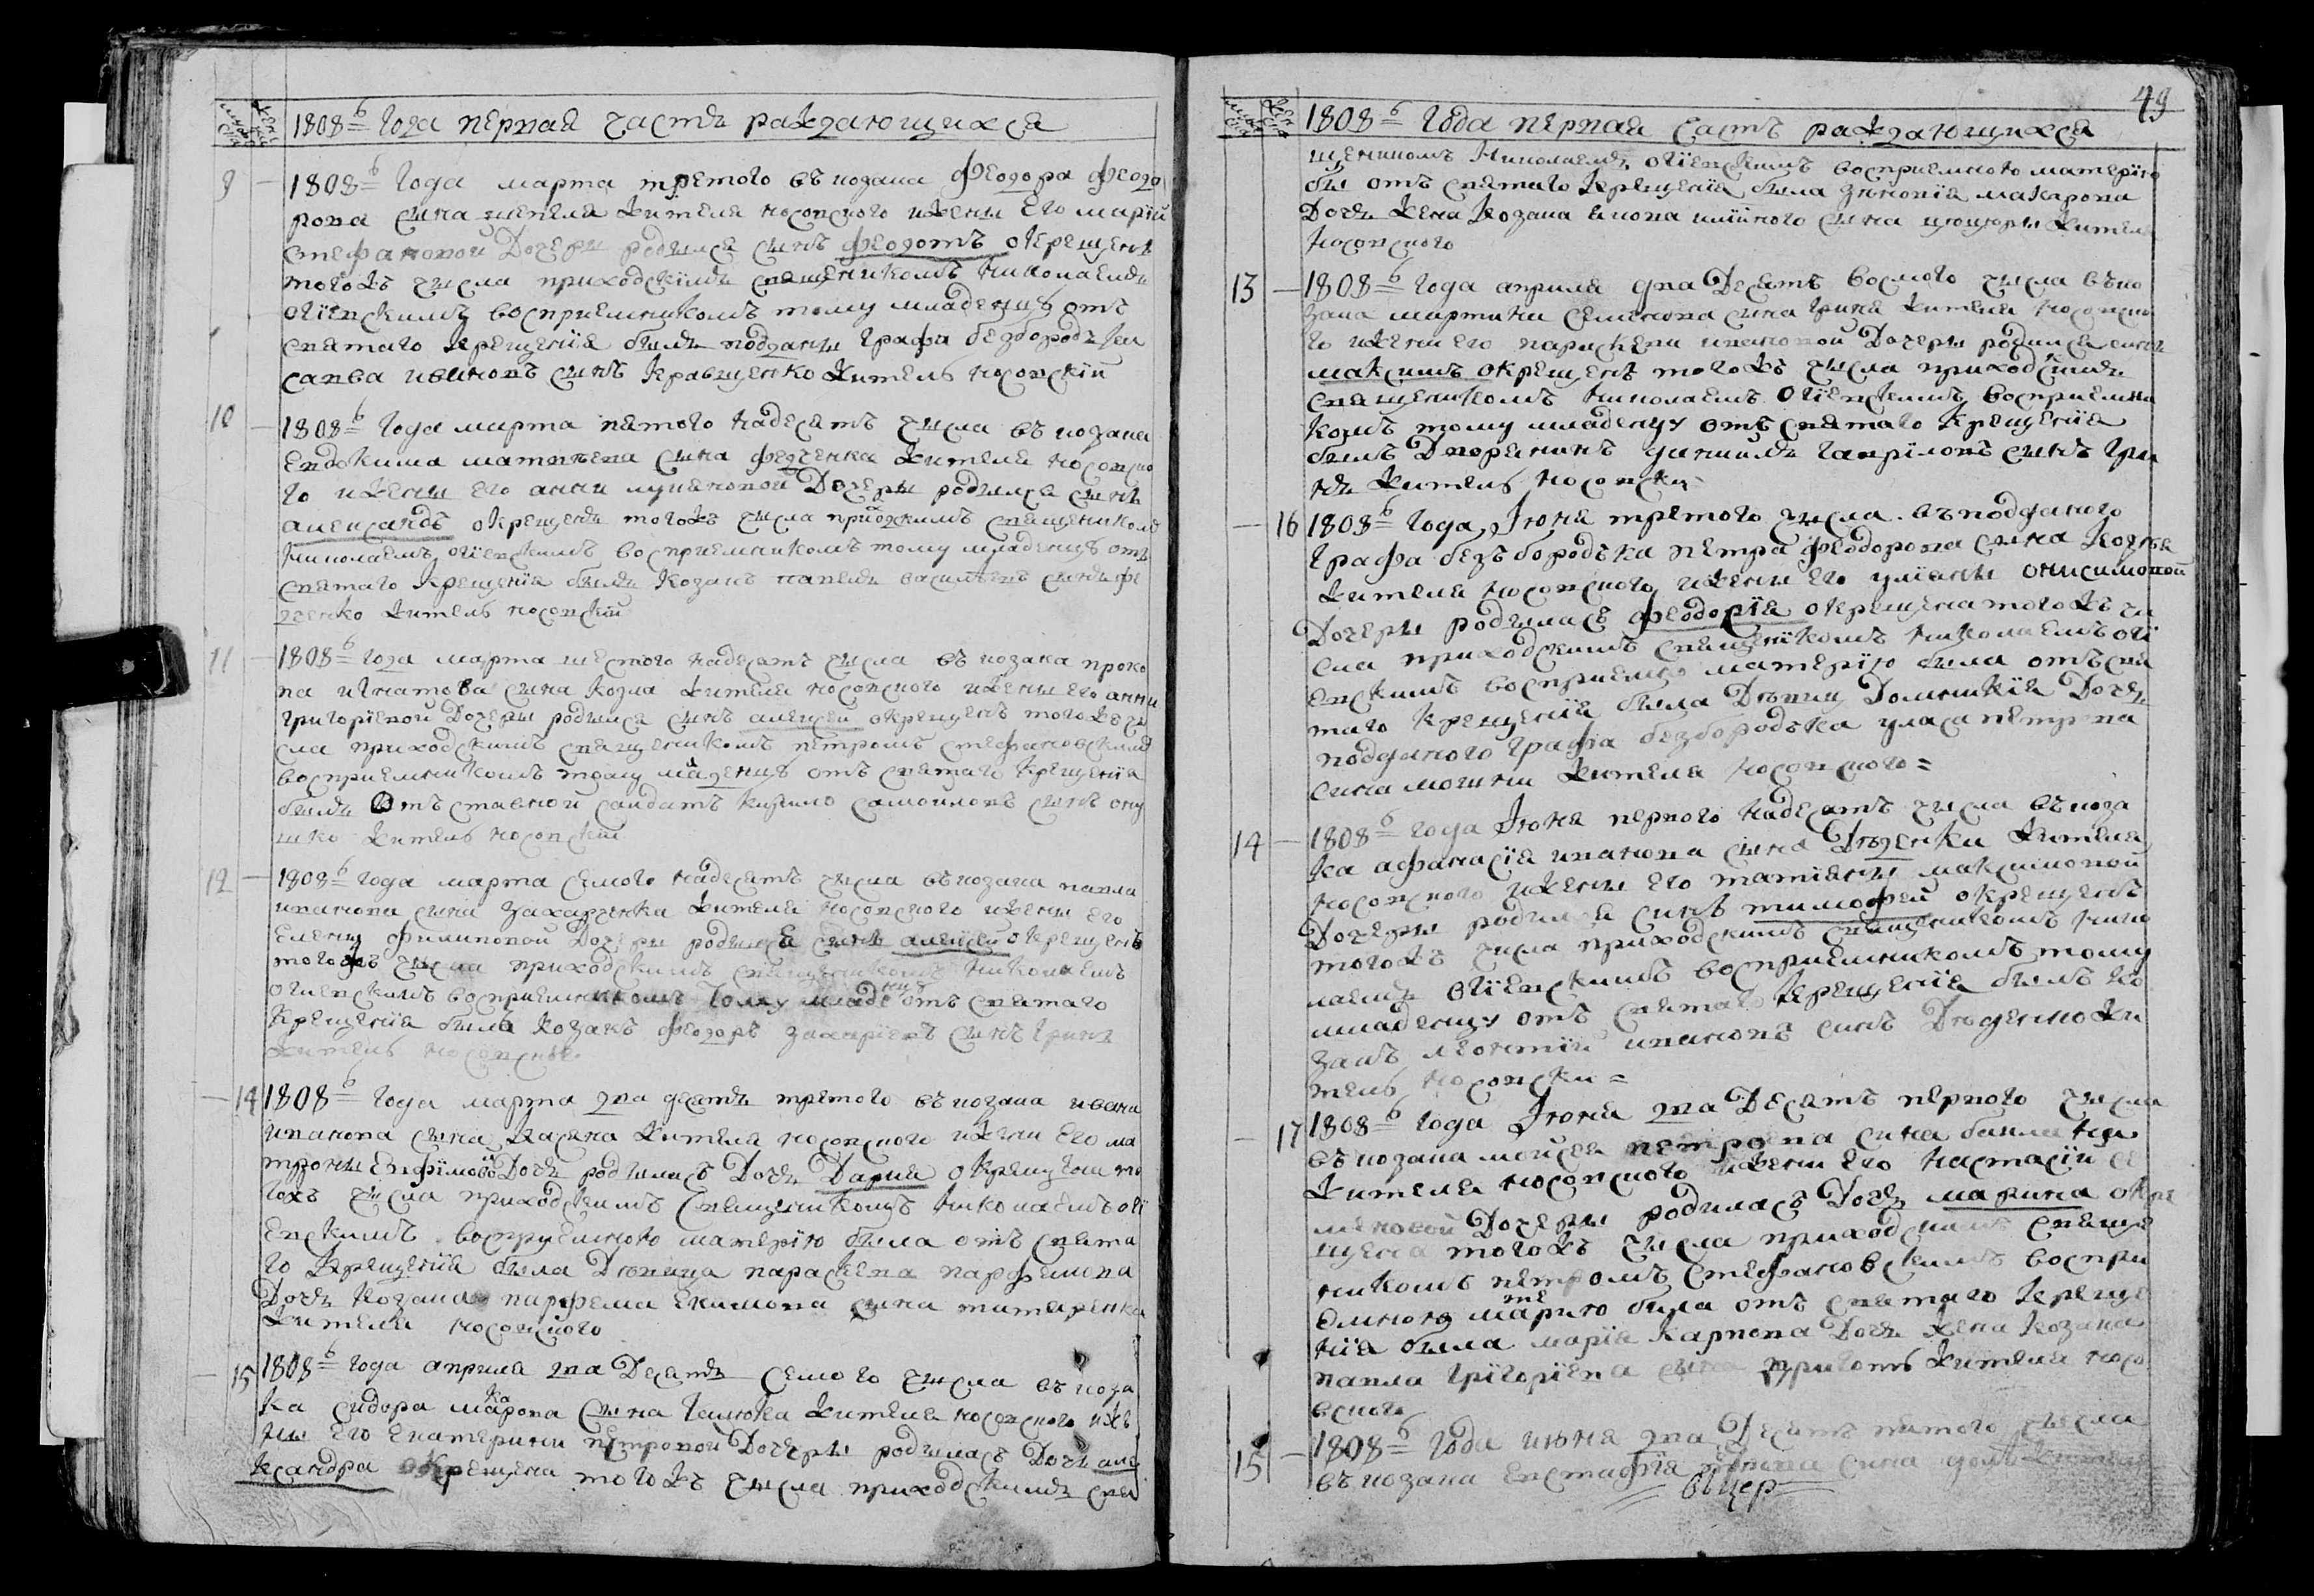 1808 б Года первая частъ раждающихся
9 1808 б Года марта третого въ козака Феодора феодо
рова сына жителя носовского ижены Его марїи
стефановой Дочеры родился сынъ феодотъ окрещенъ
тогожъ числа приходскимъ священикомъ николаемъ
огїевскимъ восприемникомъ тому младенцу отъ
святаго крещенїя былъ подданы графа безбородъки
савва ивановъ сынъ кравщенко житель носовскїй
10 1808 б Года марта пятого надесятъ числа въ козака
Евдокима матвѣева сына федченка жителя носовско
го ижены Его анны лукяновой Дочеры родылся сынъ
александъ окрещенъ тогожъ числа приходскимъ священикомъ
николаемъ огїевскимъ восприемникомъ тому младенцу отъ
святаго крещенїя былъ козакъ павелъ василѣвъ сынъ фе
дченко житель носовскїй
11 1808 б Года марта шестого надесятъ числа въ козака проко
па игнатова сына козла жителя носовского ижены Его анны
григорїевой Дочеры родился сынъ алеѯей окрещенъ тогожъ чи
сла приходскимъ священикомъ петромъ стефановскимъ
восприемникомъ тому младенцу отъ святаго крещенїя
былъ Отъставной салдатъ кирило самойловъ сынъ ону
шко житель носовскїй
12 1808 б Года марта семого надесятъ числа въ козака павла
иванова сына захарченка жителя носовского ижены Его
Елены филиповой Дочеры родился сынъ алеѯей окрещенъ
тогожъ числа приходскимъ священикомъ николаемъ
огиевскимъ восприемникомъ тому младенцу отъ святаго
крещенїя былъ козакъ феодоръ захарїевъ сынъ гринь
житель носовскы
14 1808 б Года марта два десятъ третого въ козака ивана
иванова сына касяна жителя носовского ижены Его ма
троны Евфїмовой Дочь родилась Дочь Дария окрещена то
гожъ числа приходскимъ священикомъ николаемъ огї
Евскимъ восприемною матерїю была отъ свята
го крещенїя была Дѣвица параскева парфемова
Дочь козака парфема Екимова сына титаренка
жителя носовского
15 1808 б Года априля два Десятъ семого числа въ коза
ка сидора макарова сына жителя носовского иже
ны Его Екатерины петровой Дочеры родилась Дочь але
ксандра окрещена тогожъ числа приходскимъ свя
49
1808 б Года первая частъ раждающихся
щеникомъ Николаемъ огїевскимъ восприемною матерїю
бы отъ святаго крещенїя была зѣновїя макарова
Дочь жена козака сына цюцюры жителя
носовского
13 1808 б Года априля два Десятъ восмого числа въ ко
зака мартина семенова сына гриня жителя носовско
го ижены его параскевы ивановой Дочеры родился сынъ
максимъ окрещенъ тогожъ числа приходскимъ
священикомъ николаемъ огїевскимъ восприемни
комъ тому младенцу отъ святаго крещенїя
былъ Дворянинъ даниилъ гаврїловъ сынъ гри
нь житель носовски
16 1808 б Года Іюня третого числа въ подданого
графа безъбородъка петра феодорова сына
жителя носовского ижены его улїяны онисимовой
Дочеры родыласъ феодосїя окрещена тогожъ чи
сла приходскимъ священїкомъ николаемъ огї
евскимъ восприемною матерїю была отъ свя
таго крещенїя была Дѣвицы Домникїя Дочь
подданого графа безбородъка уласа петрова
сына жителя носовского =
14 1808 б Года Іюня первого надесятъ числа въ коза
ка афанасїя иванова сына Дѣденки жителя
носовского ижены его татїяны максимовой
Дочеры родился сынъ тимофей окрещенъ
тогожъ числа приходскимъ священикомъ нико
лаемъ огїевскимъ восприемникомъ тому
младенцу отъ святаго крещенїя былъ ко
закъ леонтїй ивановъ сынъ Дѣденко жи
тель носовски =
17 1808 б Года Іюня два Десятъ первого числа
въ козака мойсея петрова сына
жителя носовского ижены Его настасїи се
меновой Дочеры родиласъ Дочь марина окре
щена тогожъ числа приходскимъ свяще
никомъ петромъ стефановскимъ воспри
емною матерю была отъ святаго креще
нїя была марїя карпова Дочь жена козака
павла грїгорїева сына жителя носо
вского
15 1808 б Года июня два Десятъ пятого числа
въ козака Евстафїя сына